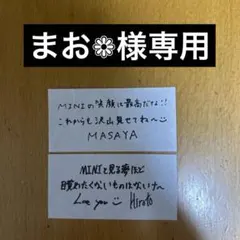 まお❁様専用
MINIの笑顔は最高だな!!
これからも沢山見せてね〜
MASAYA
MINIと見る夢ほど
覚めたくないものはないナ〜
Love you Hiroto